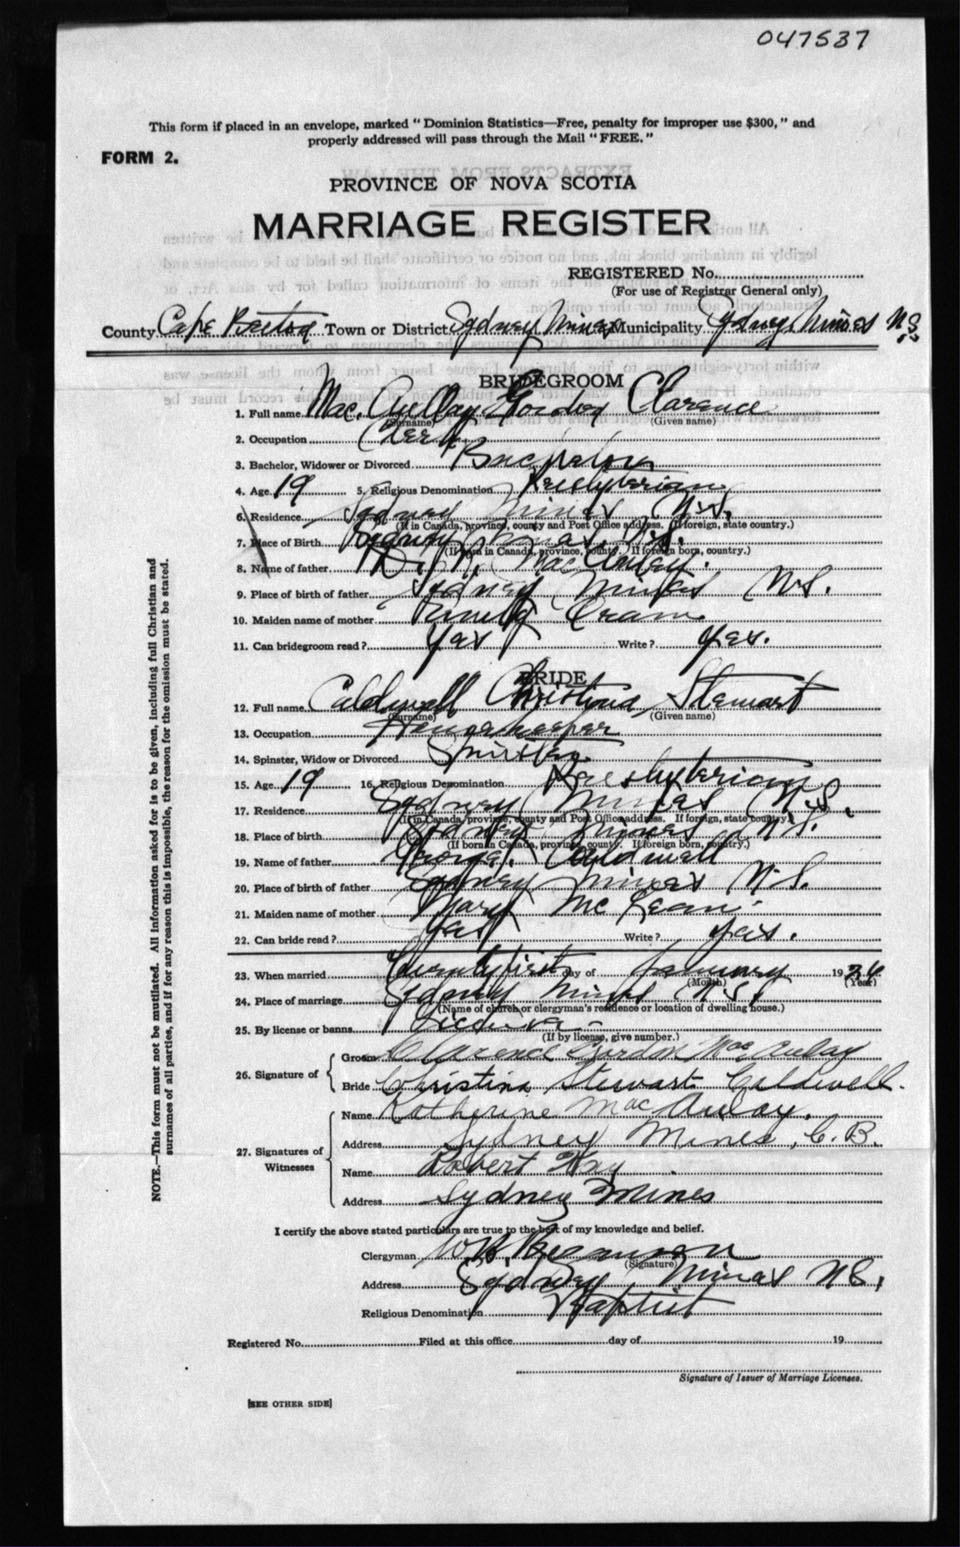 047537
This form if placed in an envelope, marked "Dominion Statistics—Free, penalty for improper use $300," and
properly addressed will pass through the Mail "FREE."
FORM 2.
PROVINCE OF NOVA SCOTIA
MARRIAGE REGISTER
REGISTERED No.
(For use of Registrar General only)
County Cape Breton Town or District Sydney Mines Municipality Sydney Mines N.S.
BRIDEGROOM
1. Full name Mac Aullay Gordon Clarence
(Surname) (Given name)
2. Occupation Clerk
3. Bachelor, Widower or Divorced Bachelor
4. Age 19 5. Religious Denomination Presbyterian
6. Residence Sydney Mines N.S.
(If in Canada, province, county and Post Office address. If foreign, state country.)
7. Place of Birth Sydney Mines N.S.
(If born in Canada, province, county. If foreign born, country.)
8. Name of father
9. Place of birth of father Sydney Mines N.S.
10. Maiden name of mother
11. Can bridegroom read? Yes Write? Yes.
BRIDE
12. Full name Caldwell Christina Stewart
(Surname) (Given name)
13. Occupation Housekeeper
14. Spinster, Widow or Divorced Spinster
15. Age 19 16. Religious Denomination Presbyterian
17. Residence Sydney Mines N.S.
(If in Canada, province, county and Post Office address. If foreign, state country.)
18. Place of birth Sydney Mines N.S.
(If born in Canada, province, county. If foreign born, country.)
19. Name of father George Caldwell
20. Place of birth of father Sydney Mines N.S.
21. Maiden name of mother Mary Mc Lean
22. Can bride read? Yes Write? Yes.
23. When married Twenty first day of January 1924
(Month) (Year)
24. Place of marriage Sydney Mines N.S.
(Name of church or clergyman's residence or location of dwelling house.)
25. By license or banns License
(If by license, give number.)
26. Signature of
Groom Clarence Gordon MacAulay
Bride Christina Stewart Caldwell.
27. Signatures of Witnesses
Name Katherine MacAulay.
Address Sydney Mines, C.B.
Name Robert
Address Sydney Mines
I certify the above stated particulars are true to the best of my knowledge and belief.
Clergyman
(Signature)
Address Sydney Mines N.S.
Religious Denomination Baptist
Registered No. Filed at this office day of 19
Signature of Issuer of Marriage Licenses.
[SEE OTHER SIDE]
NOTE.—This form must not be mutilated. All information asked for is to be given, including full Christian and
surnames of all parties, and if for any reason this is impossible, the reason for the omission must be stated.